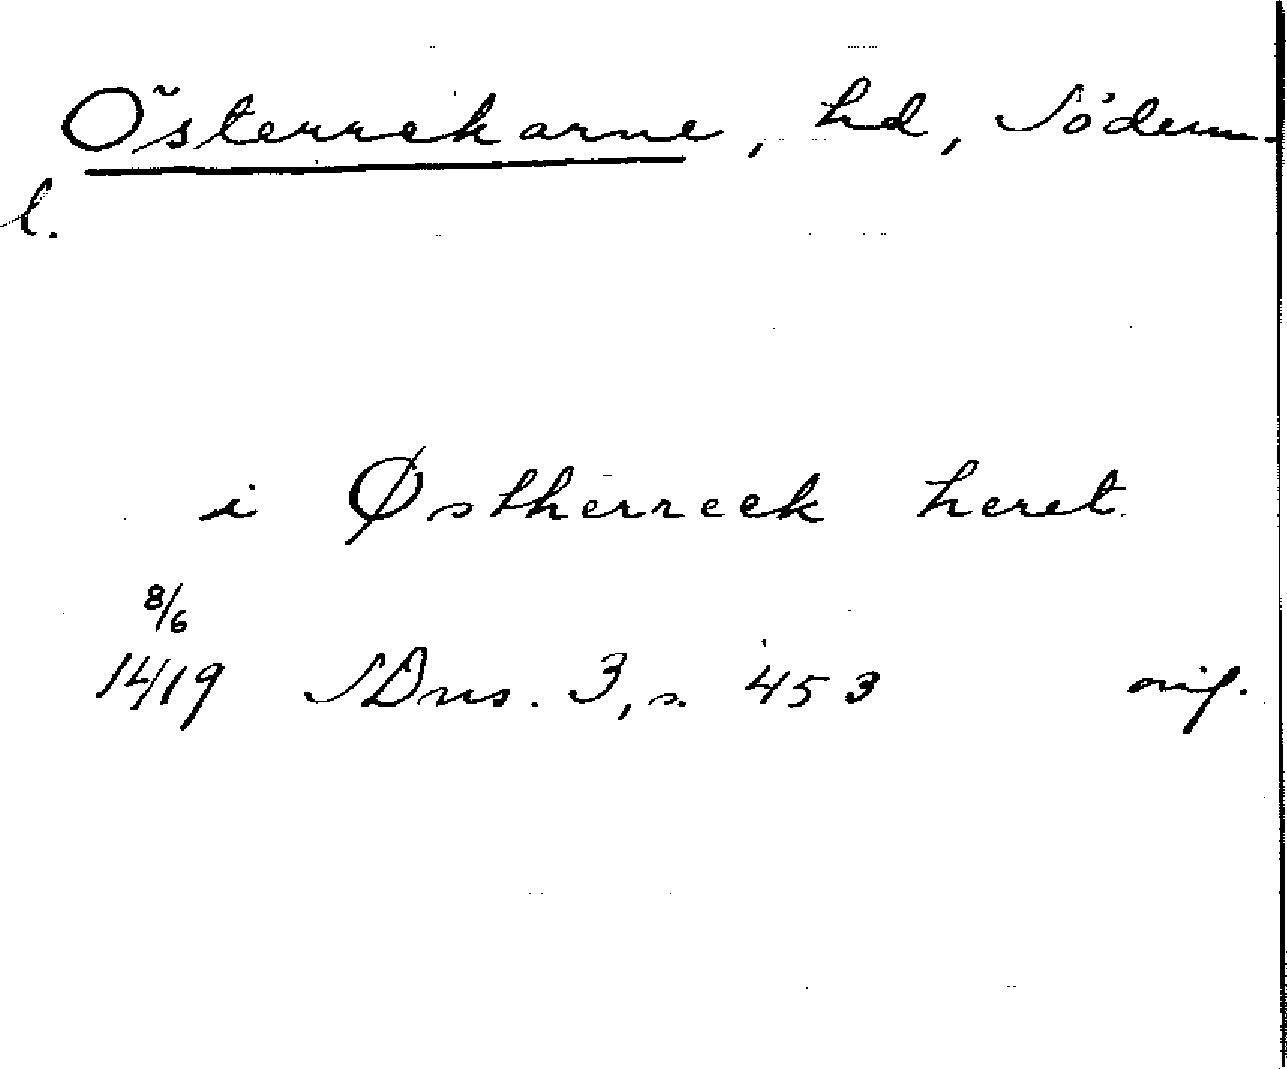 Österrekarne, hd, Söderm-
l.
i Østherreck heret
8/6
1419 SDns. 3, s. 453 orig.